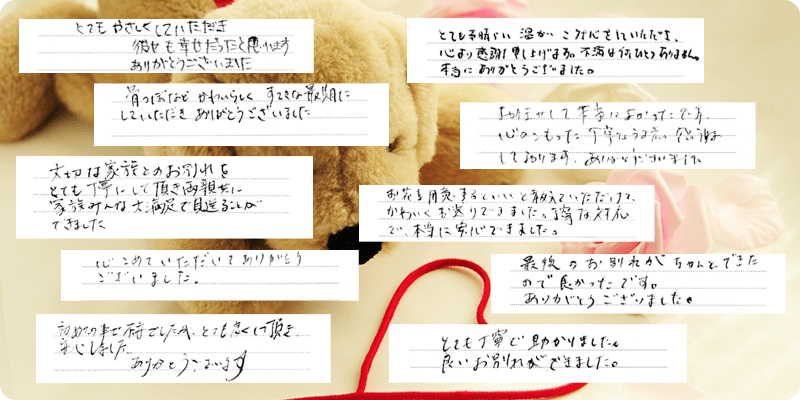 とてもやさしくしていただき
彼女も幸せだったと思います
ありがとうございました
骨つぼなど かわいらしく すてきな最期に
していただき ありがとうございました
大切な家族とのお別れを
とても丁寧にして頂き両親共に
家族みんな大満足で見送ることが
できました
心こめていただいてありがとう
ございました。
初めての事で不安でしたが、とても良くして頂き
安心しました
ありがとうございます
とても素晴らしい 温かい お心をしていただき、
心より感謝申し上げます。不満は何ひとつありません。
本当にありがとうございました。
お任せして本当によかったです。
心のこもった丁寧な
しております。ありがとうございました
お花を用意するといいと教えていただけて、
かわいくお送りできました。丁寧な対応
で、本当に安心できました。
最後のお別れが ちゃんとできた
ので良かったです。
ありがとうございました。
とても丁寧で助かりました。
良いお別れができました。